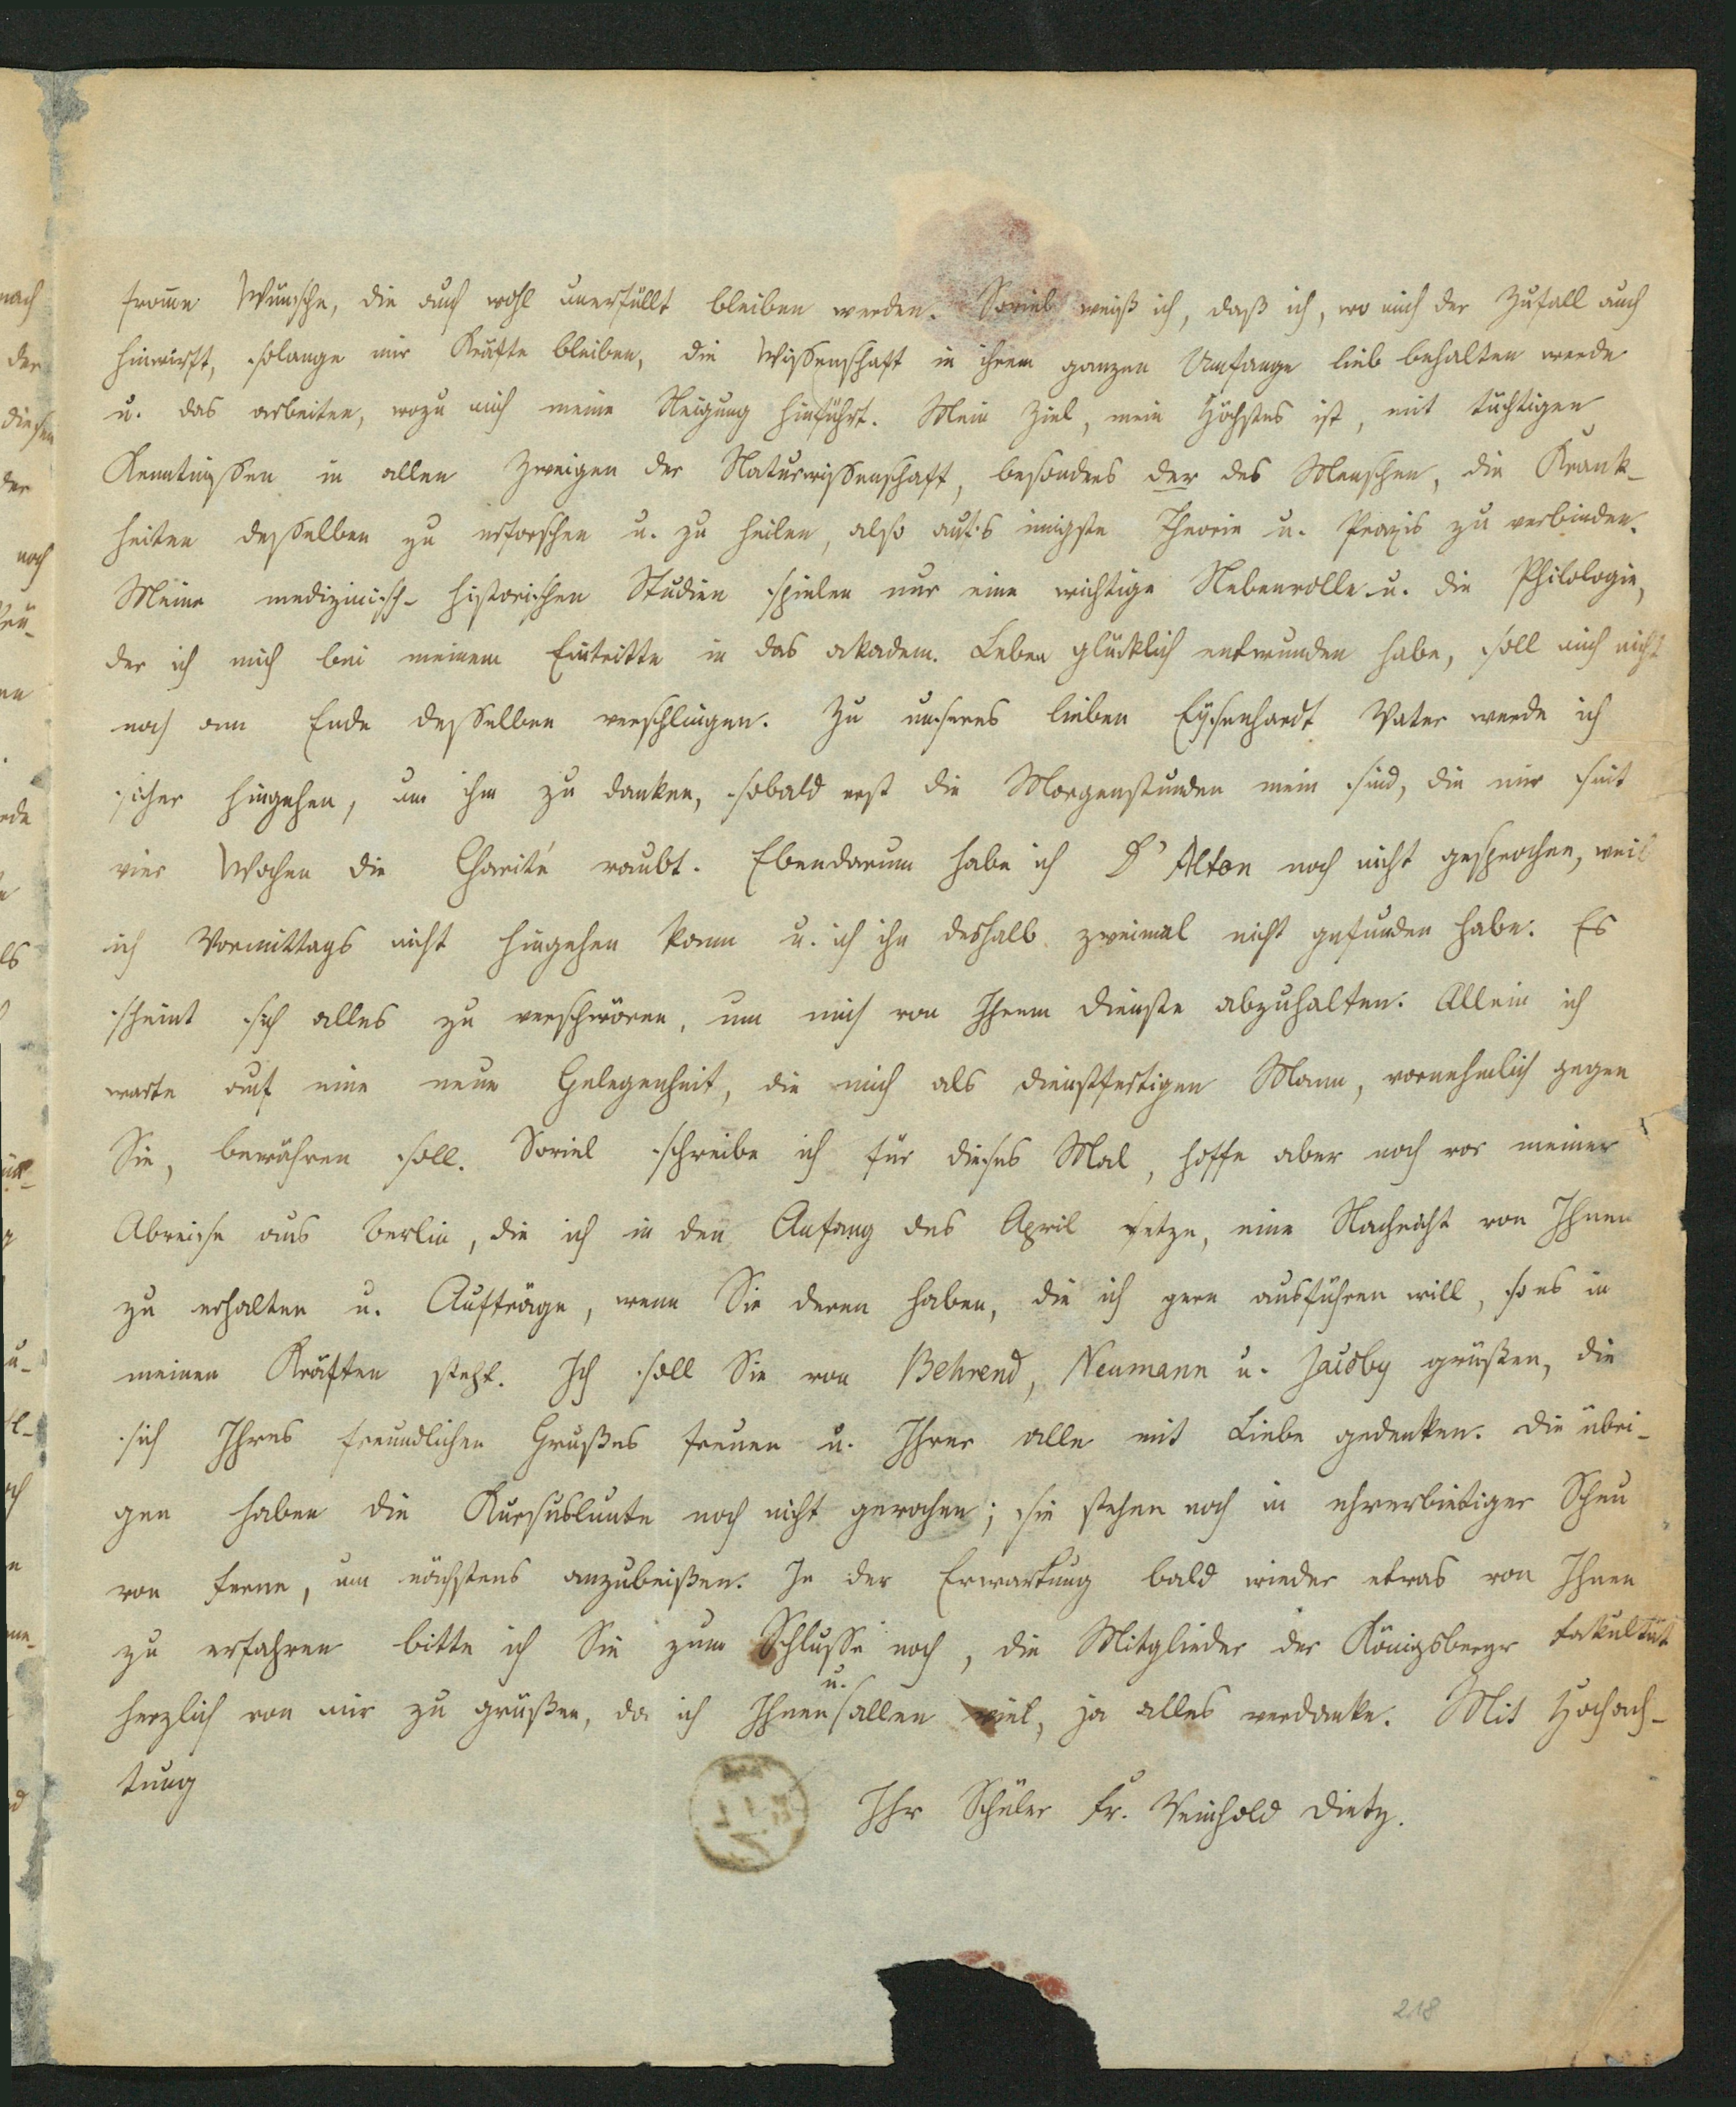 fromme Wünsche, die auch wohl unerfüllt bleiben werden. Soviel weiß ich, daß ich, wo mich der Zufall auch
hinwirft, solange mir Kräfte bleiben, die Wissenschaft in ihrem ganzen Umfange lieb behalten werde
u. das arbeiten, wozu mich meine Neigung hinführt. Mein Ziel, mein Höchstes ist, mit tüchtigen
Kenntnissen in allen Zweigen der Naturwissenschaft, besonders der des Menschen, die Krank-
heiten desselben zu erforschen u. zu heilen, also auf's innigste Theorie u. Praxis zu verbinden.
Meine medizinisch-historischen Studien spielen nur eine wichtige Nebenrolle u. die Philologie,
der ich mich bei meinem Eintritte in das akadem. Leben glücklich entwunden habe, soll mich nicht
noch am Ende desselben verschlingen. Zu unseres lieben Eysenhardt Vater werde ich
sicher hingehen, um ihm zu danken, sobald erst die Morgenstunden mein sind, die mir seit
vier Wochen die Charité raubt. Ebendarum habe ich D'Alton noch nicht gesprochen, weil
ich Vormittags nicht hingehen kann u. ich ihn deshalb zweimal nicht gefunden habe. Es
scheint sich alles zu verschwören, um mich von Ihrem Dienste abzuhalten. Allein ich
warte auf eine neue Gelegenheit, die mich als dienstfertigen Mann, vornehmlich gegen
Sie, bewähren soll. Soviel schreibe ich für dieses Mal, hoffe aber noch vor meiner
Abreise aus Berlin, die ich in den Anfang des April setze, eine Nachricht von Ihnen
zu erhalten u. Aufträge, wenn Sie deren haben, die ich gern ausführen will, so es in
meinen Kräften steht. Ich soll Sie von Behrend, Neumann u. Jacoby grüßen, die
sich Ihres freundlichen Grußes freuen u. Ihrer alle mit Liebe gedenken. Die übri-
gen haben die Kursuslunte noch nicht gerochen; sie stehen noch in ehrerbietiger Scheu
von ferne, um nächstens anzubeißen. In der Erwartung bald wieder etwas von Ihnen
zu erfahren bitte ich Sie zum Schlusse noch, die Mitglieder der Königsberger Fakultät
herzlich von mir zu grüßen, da ich Ihnen u. allen viel, ja alles verdanke. Mit Hochach-
tung
Ihr Schüler Fr. Reinhold Dietz.
218